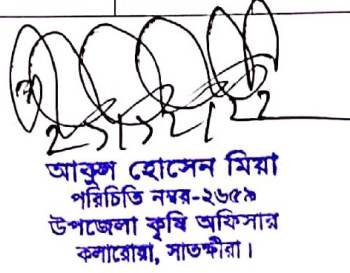 আবুল হোসেন মিয়া
পরিচিতি নম্বর-২৬৫৯
উপজেলা কৃষি অফিসার
কলারোয়া, সাতক্ষীরা।